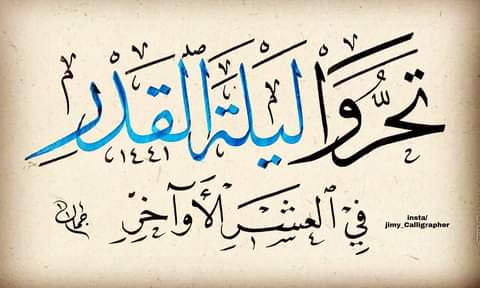 تَحَرَّوْا لَيْلَةَ الْقَدْرِ
١٤٤١
فِي الْعَشْرِ الْأَوَآخِرِ
جمال
insta/
jimy_Calligrapher